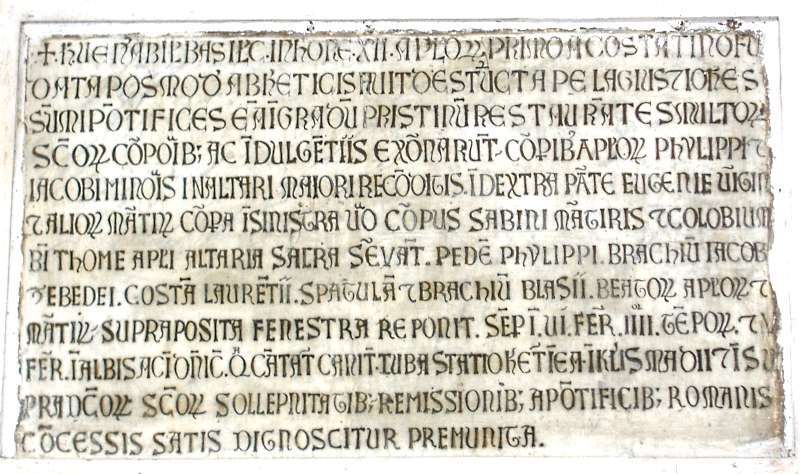 + HUENABIL BASILC. IN HONE. XII. APLOꝝ PRIMO A COSTATINO FU
DATA POSMOD AB HETICIS FUIT DESTUCTA PELAGIUS ⁊ IOHES
SŪMI PŌTIFICES EĀ Ī GRADŪ PRISTINŪ RESTAURĀTES MULTOꝝ
SC̄Oꝝ CŌPOIB; AC ĪDULGĒTIIS EXŌNARŪT CŌPIB APLOꝝ PHYLIPPI ⁊
IACOBI MINOIS IN ALTARI MAIORI RECŌDITIS. Ī DEXTRA PĀTE EUGENIE ŪIGIN
⁊ ALIOꝝ MĀTIꝝ CŌPA Ī SINISTRA UO CŌPUS SABINI MĀTIRIS ⁊ COLOBIUM
BĪ THOME APLI ALTARIA SACRA SĒVĀT. PEDĒ PHYLIPPI. BRACHIŪ IACOB
ZEBEDEI. COSTĀ LAURĒTII. SPATULĀ ⁊ BRACHIŪ BLASII. BEATOꝝ APLOꝝ ⁊
MĀTIꝝ SUPRAPOSITA FENESTRA REPONIT. SĒP Ī. UI. FER̄. IIII. TĒPOꝝ. ⁊ V
FER̄. Ī ALBIS AC Ī DNIC̄. Q CĀTAT CANIT TUBA STATIO HET ĪEA. Ī KLIS MADII ⁊ Ī SU
PRADC̄Oꝝ SC̄Oꝝ SOLLEPNITATIB; REMISSIONIB; A PŌTIFICIB; ROMANIS
CŌCESSIS SATIS DIGNOSCITUR PREMUNITA.